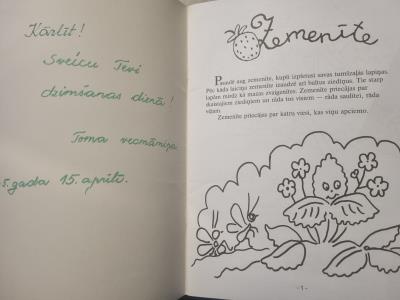 Kārlīt!
Sveicu Tevi
dzimšanas dienā!
Toma vecmāmiņa
5. gada 15. aprīlī.
Zemenīte
Pļaviņā aug zemenīte, kupli izpletusi savas tumšzaļās lapiņas.
Pēc kāda laiciņa zemenīte izaudzē arī baltus ziediņus. Tie starp
lapām mirdz kā mazas zvaigznītes. Zemenīte priecājas par
skaistajiem ziediņiem un rāda tos visiem — rāda saulītei, rāda
vējam.
Zemenīte priecājas par katru viesi, kas viņu apciemo.
- 1 -